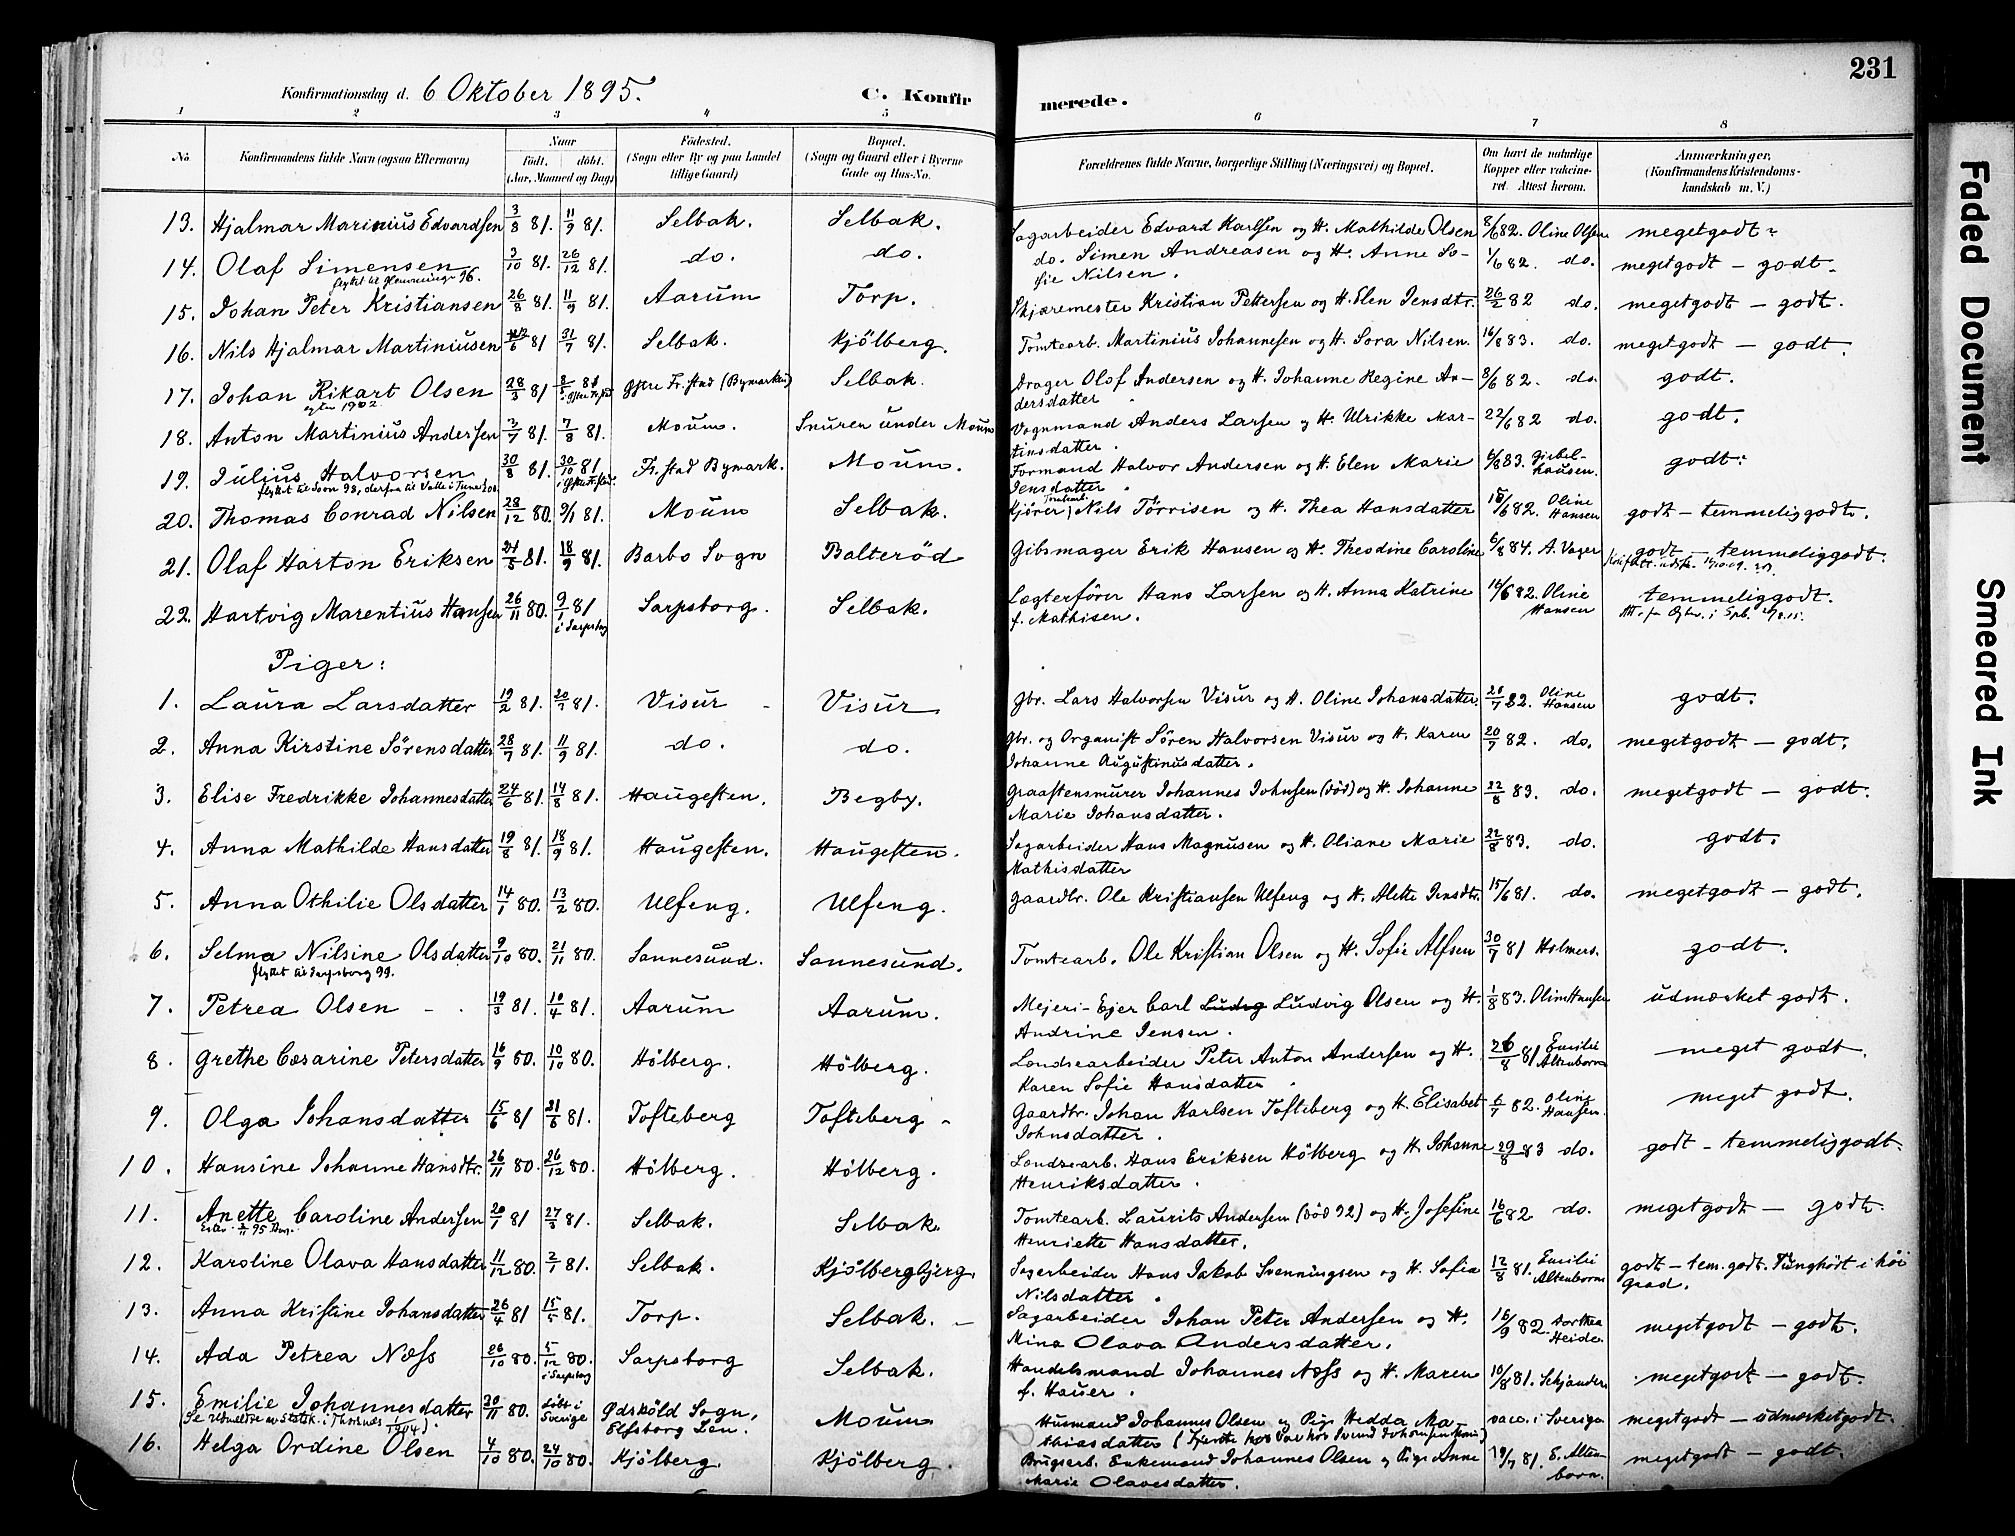 231
Konfirmationsdag d. 6 Oktober 1895. C. Konfirmerede.
1 2 3 4 5 6 7 8
No. Konfirmandens fulde Navn (ogsaa Efternavn) Naar født. døbt. (Aar, Maaned og Dag) Fødested. (Sogn eller By og paa Landet tillige Gaard) Bopæl. (Sogn og Gaard eller i Byerne Gade og Hus-No. Forældrenes fulde Navne, borgerlige Stilling (Næringsvei) og Bopæl. Om havt de naturlige Kopper eller vakcineret. Attest herom. Anmærkninger. (Konfirmandens Kristendomskundskab m. V.)
13. Hjalmar Marinius Edvardsen 3/8 81. 11/9 81. Selbak. Selbak. Sagarbeider Edvard Karlsen og H. Mathilde Olsen 8/6 82. Oline Olsen megetgodt
14. Olaf Simensen 3/10 81. 26/12 81. do. do. do. Simen Andreasen og H. Anne So- 1/6 82. do. megetgodt – godt.
fie Nilsen.
15. Johan Peter Kristiansen 26/8 81. 11/9 81. Aarum Torp. Skjæremester Kristian Pettersen og H. Elen Jensdtr. 26/2 82 do. megetgodt – godt.
16. Nils Hjalmar Martiniusen 81 31/7 81. Selbak. Kjölberg. Tomtearb. Martinius Johannesen og H. Sora Nilsen. 16/8 83. do. megetgodt – godt.
17. Johan Rikart Olsen 28/3 81 8/5 81 Gstre Fr.stad (Bymarken) Selbak. Drager Olof Andersen og H. Johanne Regine An- 8/6 82. do. godt.
dersdatter
18. Anton Martinius Andersen 3/7 81. 7/8 81. Moum. Snuren under Moum Vognmand Anders Larsen og H. Ulrikke Mar- 22/6 82 do. godt.
tinsdatter.
19. Julius Halvorsen 30/8 81. 30/10 81 Fr.stad Bymark. Moum. Formand Halvor Andersen og H. Elen Marie 6/8 83. godt.
Jensdatter
20. Thomas Conrad Nilsen 28/12 80. 9/1 81. Moum Selbak. Kjører, Nils Törrisen og H. Thea Hansdatter 82. Oline Hansen godt – temmeliggodt.
21. Olaf Harton Eriksen 81. 18/9 81. Barbo Sogn Balteröd Gibsmager Erik Hansen og H. Theodine Caroline 6/8 84. A. Vager godt – temmeliggodt.
22. Hartvig Marentius Hansen 26/11 80. 9/1 81 i Sarpsborg Sarpsborg. Selbak. Lægterförer Hans Larsen og H. Anna Katrine 14/6 82. Oline Hansen temmeliggodt.
f. Mathisen.
Piger:
1. Laura Larsdatter 19/2 81. 81. Visur – Visur Gbr. Lars Halvorsen Visur og H. Oline Johansdatter. 20/7 82. Oline Hansen godt.
2. Anna Kirstine Sörensdatter 28/7 81. 11/9 81. do. do. Gbr. og Organist Sören Halvorsen Visur og H. Karen 20/7 82. do. megetgodt – godt.
Johanne Augustinusdatter.
3. Elise Fredrikke Johannesdatter 24/6 81. 14/8 81. Haugesten. Begby. Graastensmurer Johannes Johnsen (død) og H. Johanne 22/8 83. do. megetgodt – godt.
Marie Johansdatter.
4. Anna Mathilde Hansdatter 19/8 81. 18/9 81. Haugesten. Haugesten. Sagarbeider Hans Magnusen og H. Oliane Marie 22/8 83. do. godt.
Mathisdatter
5. Anna Othilie Olsdatter 14/1 80. 13/2 80. Ulfeng. Ulfeng. Gaardbr. Ole Kristiansen Ulfeng og H. Alette Jensdtr. 15/6 81. do. megetgodt – godt.
6. Selma Nilsine Olsdatter 9/10 80. 21/11 80. Sannesund. Sannesund. Tomtearb. Ole Kristian Olsen og H. Sofie Alfsen 30/7 81 Holmers. godt.
flyttet til Sarpsborg 99.
7. Petrea Olsen – 19/3 81. 10/4 81. Aarum Aarum. Mejeri-Ejer Carl Ludvig Olsen og H. 1/8 83. Oline Hansen udmærket godt.
Andrine Jensen.
8. Grethe Cæsarine Petersdatter 16/9 80. 10/10 80. Hölberg. Hölberg. Londsearbeider Peter Anton Andersen og H. 26/8 81 Emilie Altenborn meget godt.
Karen Sofie Hansdatter
9. Olga Johansdatter 15/6 81 81. Tofteberg Tofteberg Gaardbr. Johan Karlsen Tofteberg og H. Elisabet 6/7 82. Oline Hansen meget godt.
Johnsdatter.
10. Hansine Johanne Hansdtr. 26/11 80. 26/12 80. Hölberg. Hölberg. Londsearb. Hans Eriksen Hölberg og H. Johanne 29/8 83 do. godt – temmeliggodt.
Henriksdatter.
11. Anette Caroline Andersen 20/1 81 27/3 81. Selbak. Selbak Tomtearb. Laurits Andersen (död 92) og H. Josefine 16/6 82 do. megetgodt – godt.
Henriette Hansdatter.
12. Karoline Olava Hansdatter 11/12 80. 2/1 81. Selbak. Kjölbergbjerg. Sagarbeider Hans Jakob Svenningsen og H. Sofie 12/8 81. Emilie Altenborn godt – tem. godt. Tunghört i höi Grad.
Nilsdatter.
13. Anna Kristine Johansdatter 26/4 81 15/5 81. Torp. Selbak. – Sagarbeider Johan Peter Andersen og H. 16/9 82. Dorthea Heide. megetgodt – godt.
Mina Olava Andersdatter.
14. Ada Petrea Næss 26/10 80. 5/12 80. i Sarpsborg Sarpsborg Selbak. Handelsmand Johannes Næss og H. Maren 10/8 81. megetgodt – godt.
f. Hauer.
15. Emilie Johannesdatter 30/11 80. döbt i Sverige Ödsköld Sogn, Elfsborg Len. Moum Husmand Johannes Olsen og Pige Hedda Ma- vacc. i Sverige megetgodt – udmerketgodt.
thiasdatter
16. Helga Ordine Olsen 4/10 80. 24/10 80. Kjölberg. Kjölberg. Brugsarb. Enkemand Johannes Olsen og Pige Anne 19/7 81. E. Altenborn. megetgodt – godt.
Marie Olavesdatter.
Faded Document
Smeared Ink